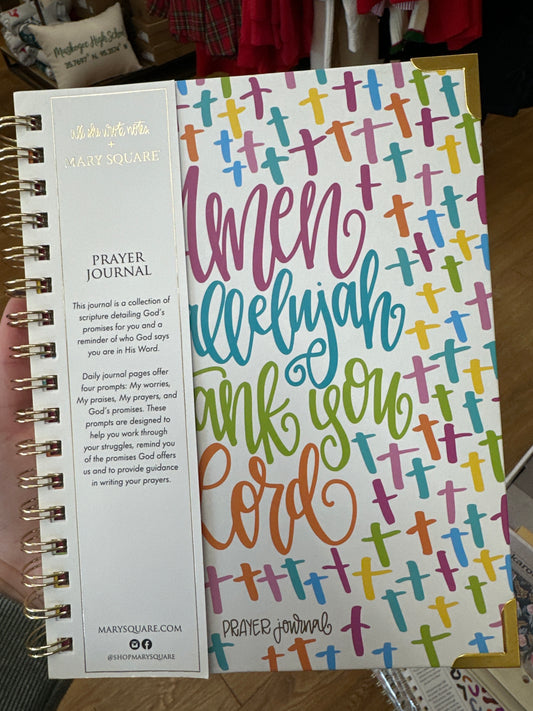 Muskogee High School
35.7697° N. 95.3274° W
all she wrote notes
+
MARY SQUARE
PRAYER
JOURNAL
This journal is a collection of
scripture detailing God's
promises for you and a
reminder of who God says
you are in His Word.
Daily journal pages offer
four prompts: My worries,
My praises, My prayers, and
God's promises. These
prompts are designed to
help you work through
your struggles, remind you
of the promises God offers
us and to provide guidance
in writing your prayers.
MARYSQUARE.COM
@SHOPMARYSQUARE
Amen
allelujah
ank you
Lord
PRAYER journal